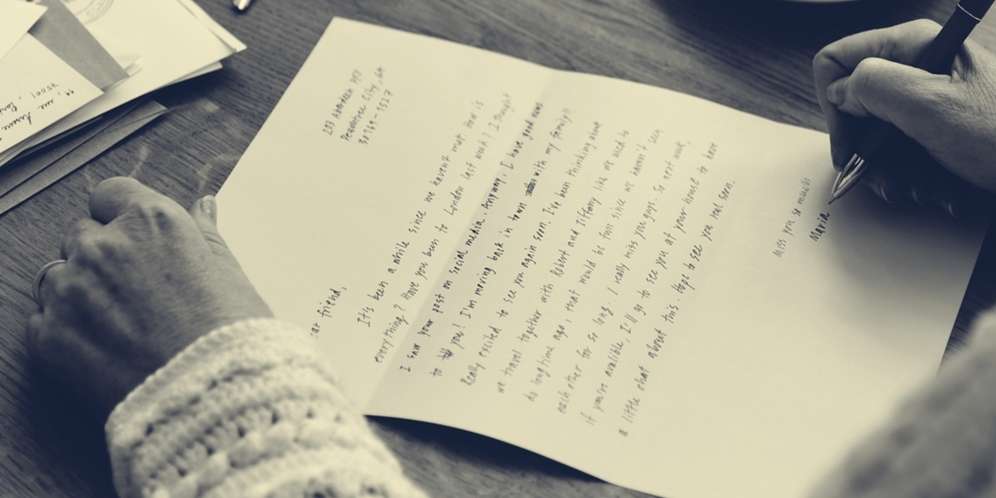 253 Abbotson Ave
Providence City, GA
30164-1527
ar friend,
It's been a while since we havent met. How is
everything? Have you been to London last week? I thought
I saw your post on social media. Anyway, I have good news
to you! I'm moving back in town with my family!
Really excited to see you again soon. I've been thinking about
we travel together with Robert and Tiffany like we used to
do long time ago, that would be fun since we haven't seen
each other for so long. I really miss you guys. So next week,
if you're avalible, I'll go to see you at your house to have
a little chat about this. Hope to see you real soon.
Miss you so much
Maria